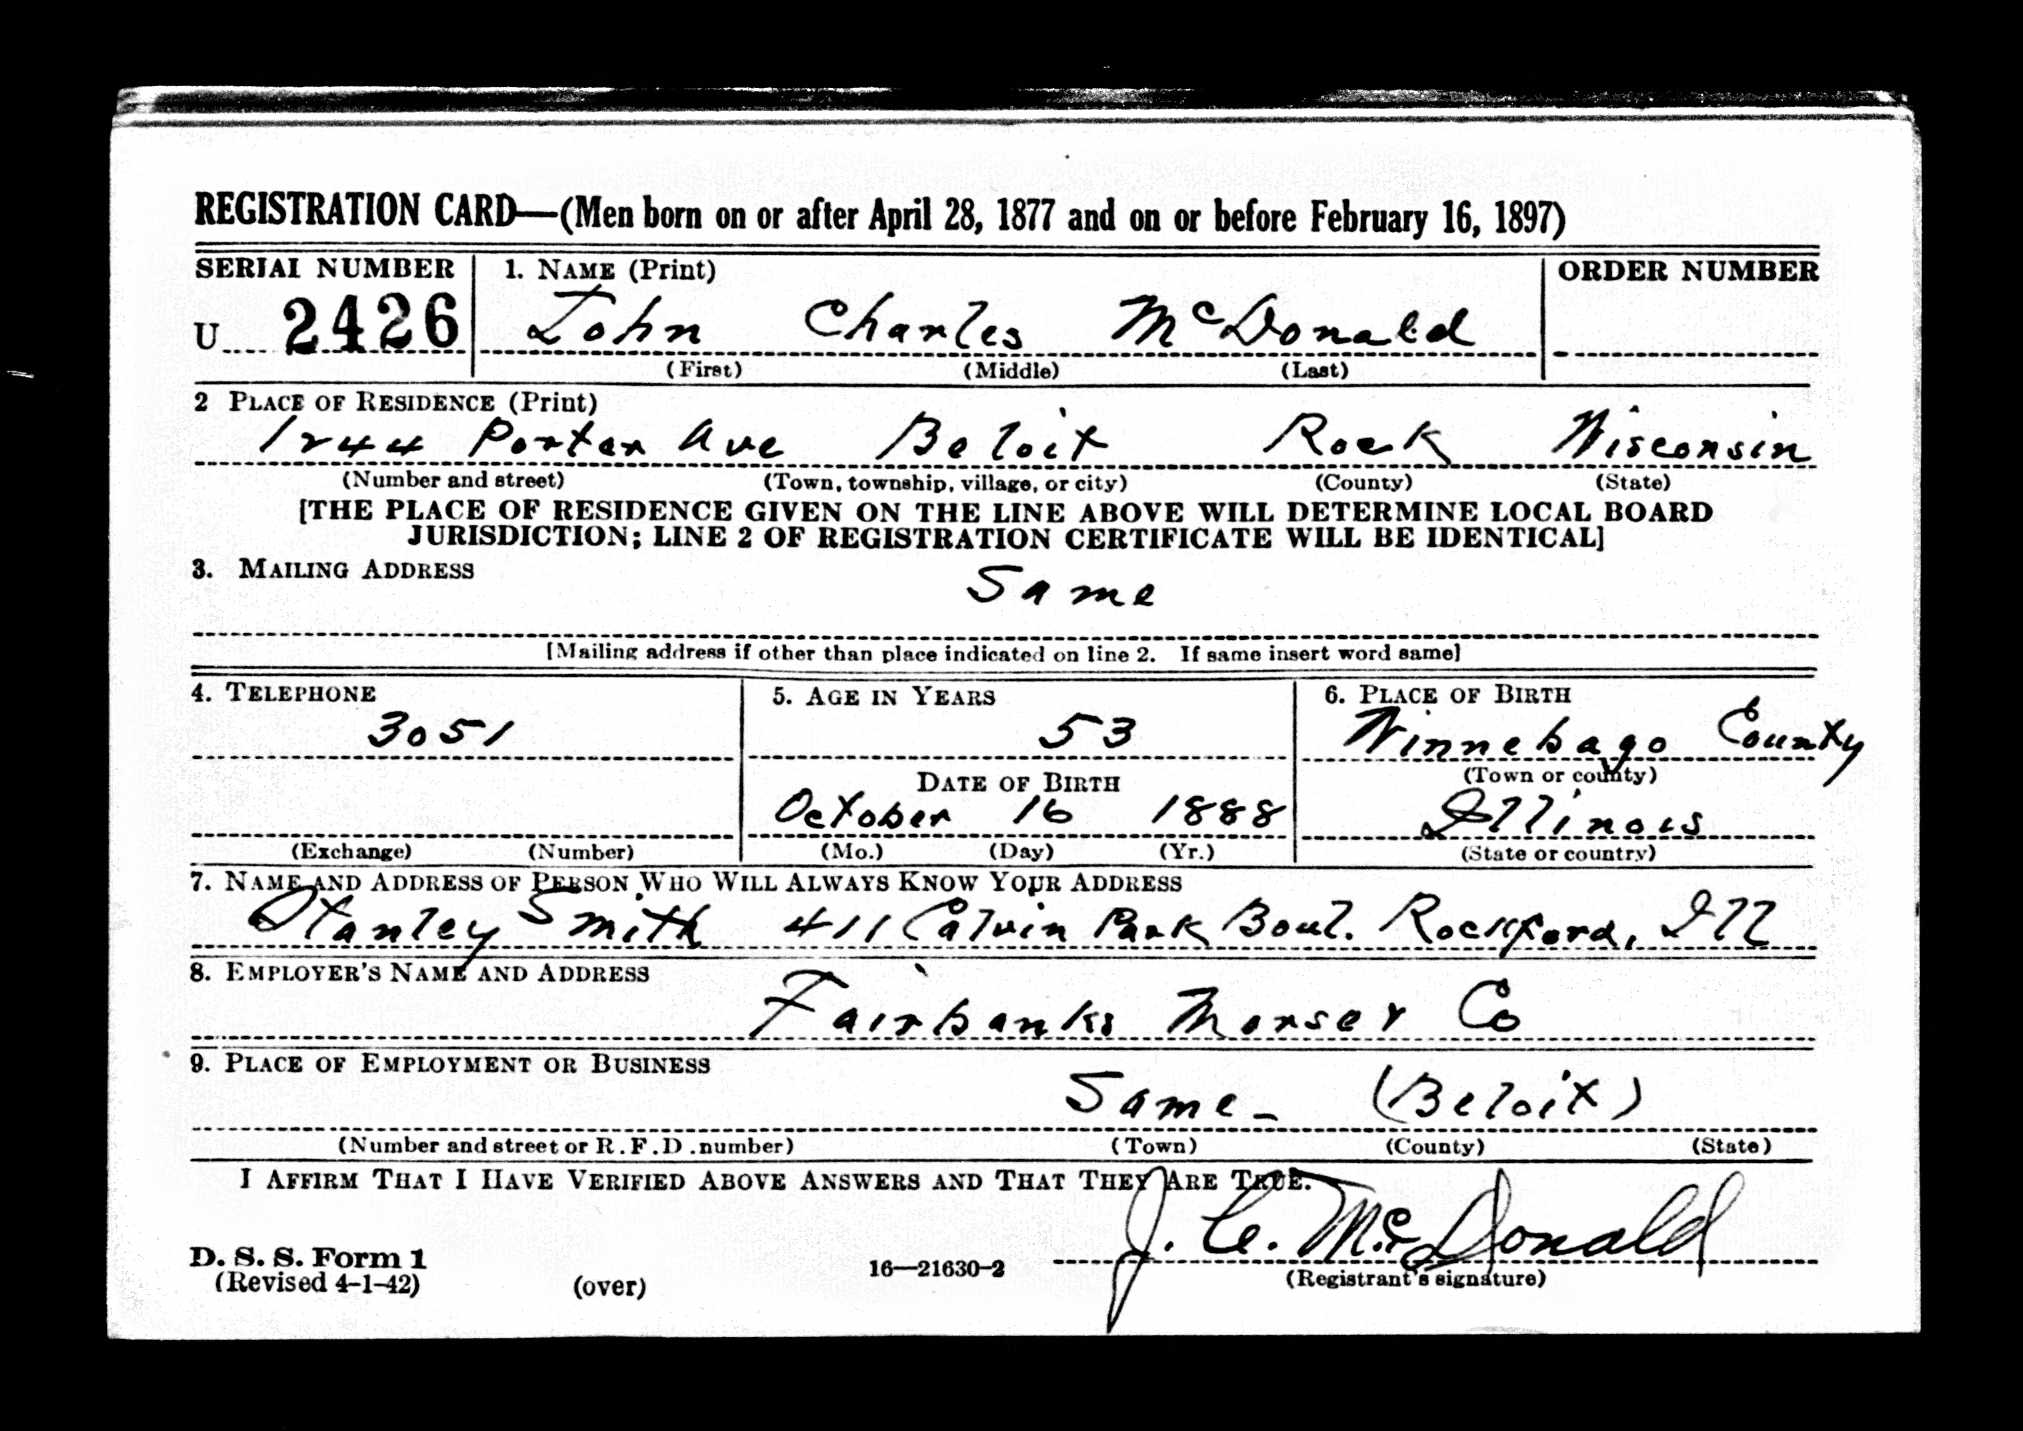 REGISTRATION CARD—(Men born on or after April 28, 1877 and on or before February 16, 1897)
SERIAL NUMBER 1. NAME (Print) ORDER NUMBER
U 2426 John Charles McDonald
(First) (Middle) (Last)
2 PLACE OF RESIDENCE (Print)
1244 Porter Ave Beloit Rock Wisconsin
(Number and street) (Town, township, village, or city) (County) (State)
[THE PLACE OF RESIDENCE GIVEN ON THE LINE ABOVE WILL DETERMINE LOCAL BOARD
JURISDICTION; LINE 2 OF REGISTRATION CERTIFICATE WILL BE IDENTICAL]
3. MAILING ADDRESS
Same
[Mailing address if other than place indicated on line 2. If same insert word same]
4. TELEPHONE 5. AGE IN YEARS 6. PLACE OF BIRTH
3051 53 Winnebago County
DATE OF BIRTH (Town or county)
October 16 1888 Illinois
(Exchange) (Number) (Mo.) (Day) (Yr.) (State or country)
7. NAME AND ADDRESS OF PERSON WHO WILL ALWAYS KNOW YOUR ADDRESS
Stanley Smith 411 Calvin Park Boul. Rockford, Ill
8. EMPLOYER'S NAME AND ADDRESS
Fairbanks Morse Y Co
9. PLACE OF EMPLOYMENT OR BUSINESS
Same - (Beloit)
(Number and street or R.F.D. number) (Town) (County) (State)
I AFFIRM THAT I HAVE VERIFIED ABOVE ANSWERS AND THAT THEY ARE TRUE.
J. C. McDonald
D. S. S. Form 1
(Revised 4-1-42) (over) 16—21630-2 (Registrant's signature)